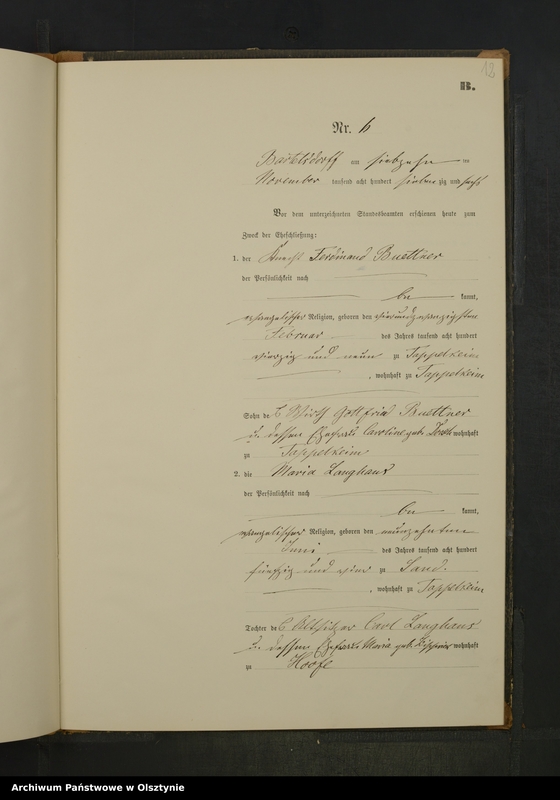 13
B.
Nr. 6
Bartelsdorff am siebzehn ten
November tausend acht hundert sieben zig und sechs
Vor dem unterzeichneten Standesbeamten erschienen heute zum
Zweck der Eheschließung:
1. der Knecht Ferdinand Buettner
der Persönlichkeit nach
be kannt,
evangelischer Religion, geboren den vierundzwanzigsten
Februar des Jahres tausend acht hundert
vierzig und neun zu Tappelkeim
, wohnhaft zu Tappelkeim
Sohn des Wirth Gottfried Buettner
u. dessen Ehefrau Caroline geb. wohnhaft
zu Tappelkeim
2. die Maria Langhans
der Persönlichkeit nach
be kannt,
evangelischer Religion, geboren den neunzehnten
Juni des Jahres tausend acht hundert
fünfzig und vier zu Sand.
, wohnhaft zu Tappelkeim
Tochter des Altsitzer Carl Langhans
u. dessen Ehefrau Maria geb. wohnhaft
zu Hoofe
Archiwum Państwowe w Olsztynie